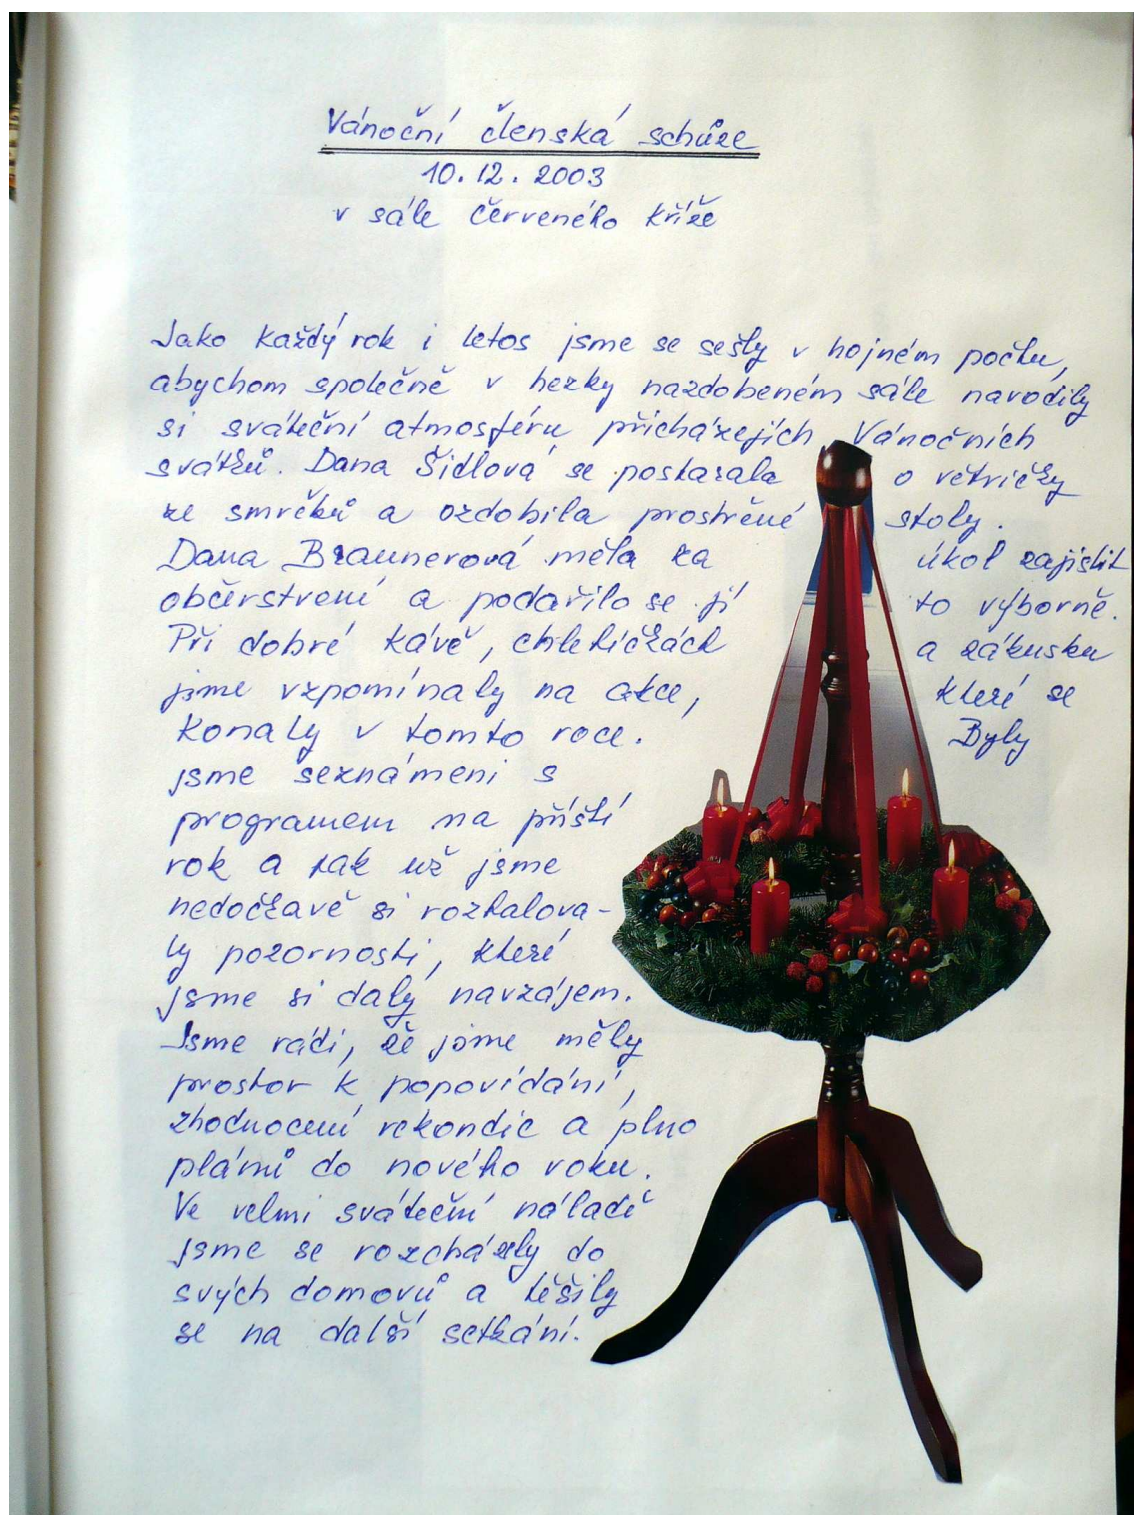 Vánoční členská schůze
10. 12. 2003
v sále Červeného kříže
Jako každý rok i letos jsme se sešly v hojném počtu,
abychom společně v hezky nazdobeném sále navodily
si sváteční atmosféru přicházejích Vánočních
svátků. Dana Šídlová se postarala o větvičky
ze smrčků a ozdobila prostřené stoly.
Dana Braunerová měla za úkol zajistit
občerstvení a podařilo se jí to výborně.
Při dobré kávě, chlebíčkách a zákusku
jsme vzpomínaly na akce, které se
konaly v tomto roce. Byly
jsme seznámeni s
programem na příští
rok a pak už jsme
nedočkavě si rozbalova-
ly pozornosti, které
jsme si daly navzájem.
Jsme rádi, že jsme měly
prostor k popovídání,
zhodnocení rekondic a plno
plánů do nového roku.
Ve velmi sváteční náladě
jsme se rozcházely do
svých domovů a těšily
se na další setkání.